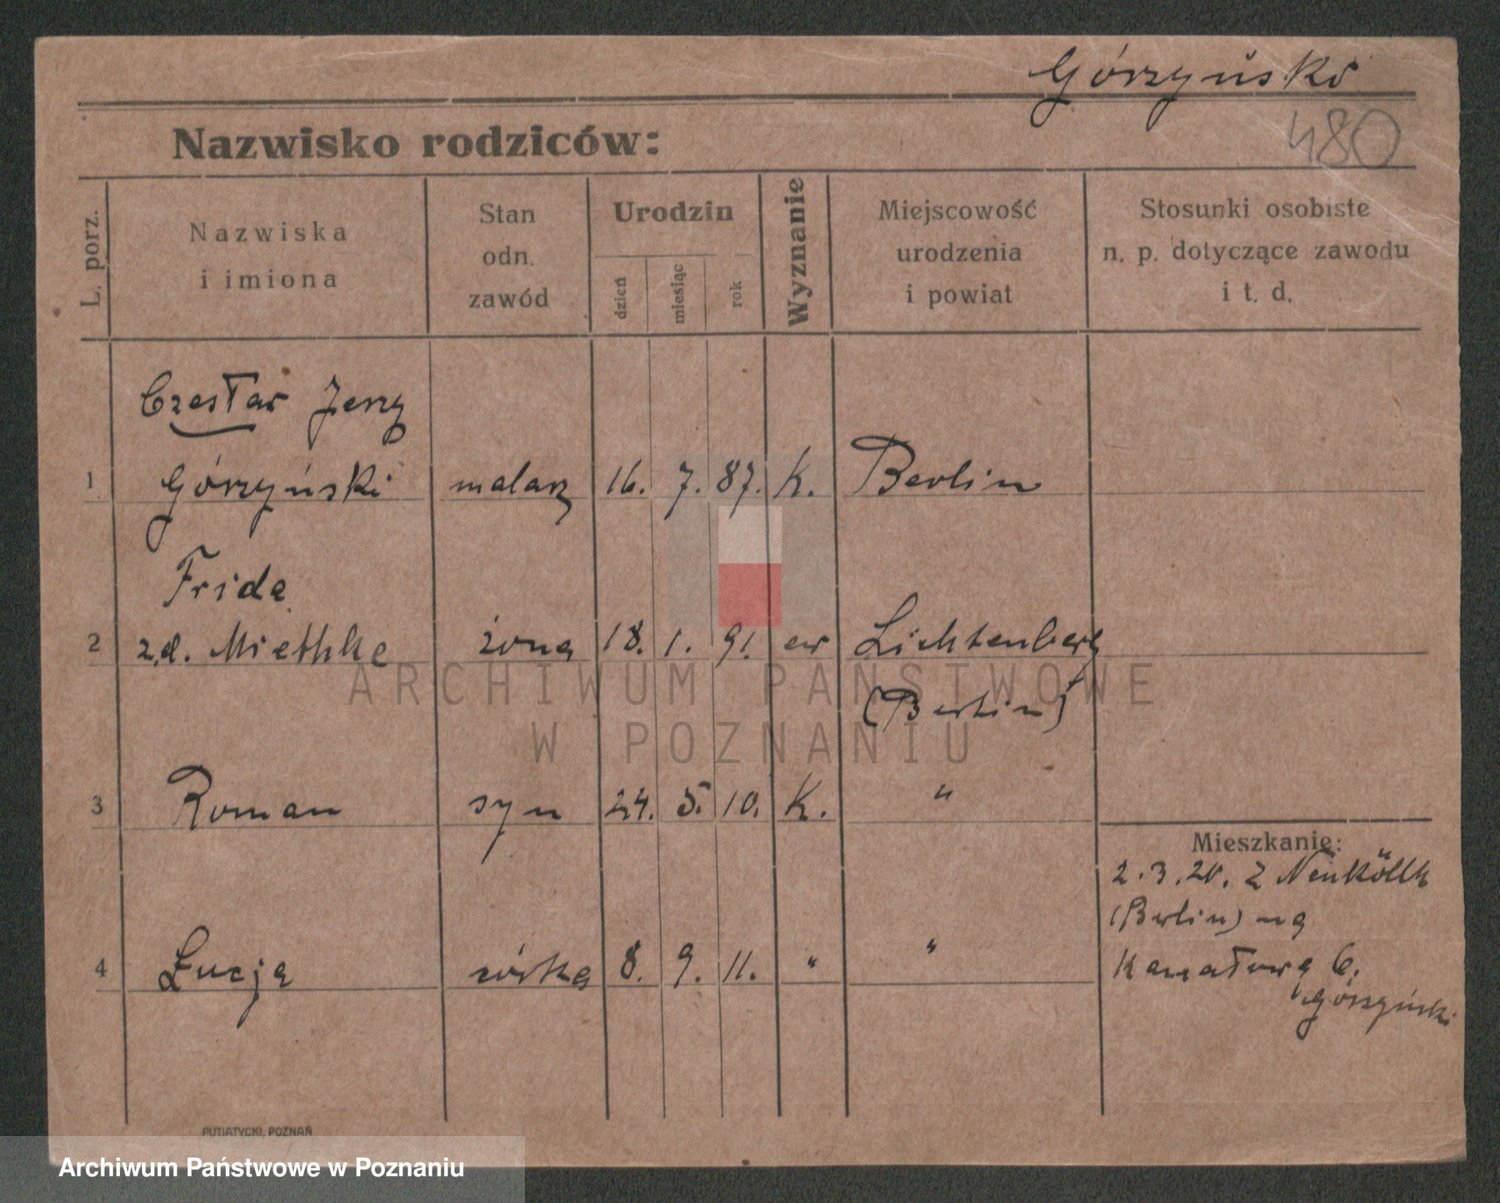 Górzyński
480
Nazwisko rodziców:
L. porz.
Nazwiska
i imiona
Stan
odn.
zawód
Urodzin
dzień
miesiąc
rok
Wyznanie
Miejscowość
urodzenia
i powiat
Stosunki osobiste
n. p. dotyczące zawodu
i t. d.
Czesław Jerzy
1 Górzyński malarz 16. 7. 87. K. Berlin
Frida
2 z.d. Miethke żona 18. 1. 91. ew Lichtenberg
(Berlin)
3 Roman syn 24. 5. 10. K. "
Mieszkanie:
2.3.20. z Neukölln
(Berlin) na
4 Łucja córka 8. 9. 11. " "
Kanałową 6.
Górzyński
PUTIATYCKI, POZNAŃ
ARCHIWUM PAŃSTWOWE
W POZNANIU
Archiwum Państwowe w Poznaniu